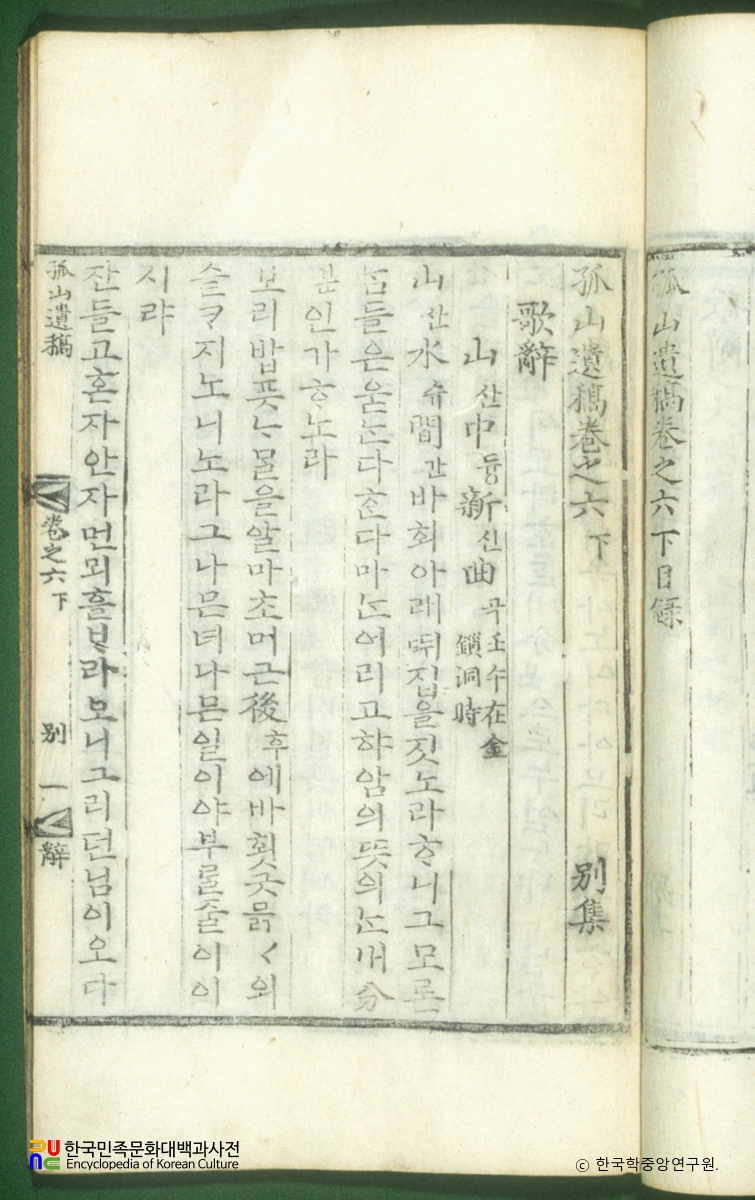 孤山遺稿卷之六下目錄
孤山遺稿卷之六 下 別集
歌辭
山산中듕新신曲곡 壬午在金鎖洞時
山산水슈間간바회아래ᄠᅱ집을짓노라ᄒᆞ니그모론
ᄂᆞᆷ들은욷ᄂᆞᆫ다ᄒᆞᆫ다마ᄂᆞᆫ어리고햐암의ᄠᅳᆺ의ᄂᆞᆫ내分
분인가ᄒᆞ노라
보리밥픗ᄂᆞᄆᆞᆯ을알마초머근後후에바횟긋믉ᄀᆞ의
슬ᄏᆞ지노니노라그나믄녀나믄일이야부ᄅᆞᆯ줄이이
시랴
잔들고혼자안자먼뫼흘ᄇᆞ라보니그리던님이오다
孤山遺稿 卷之六 下 別 一 辭
한국민족문화대백과사전
Encyclopedia of Korean Culture
ⓒ 한국학중앙연구원.